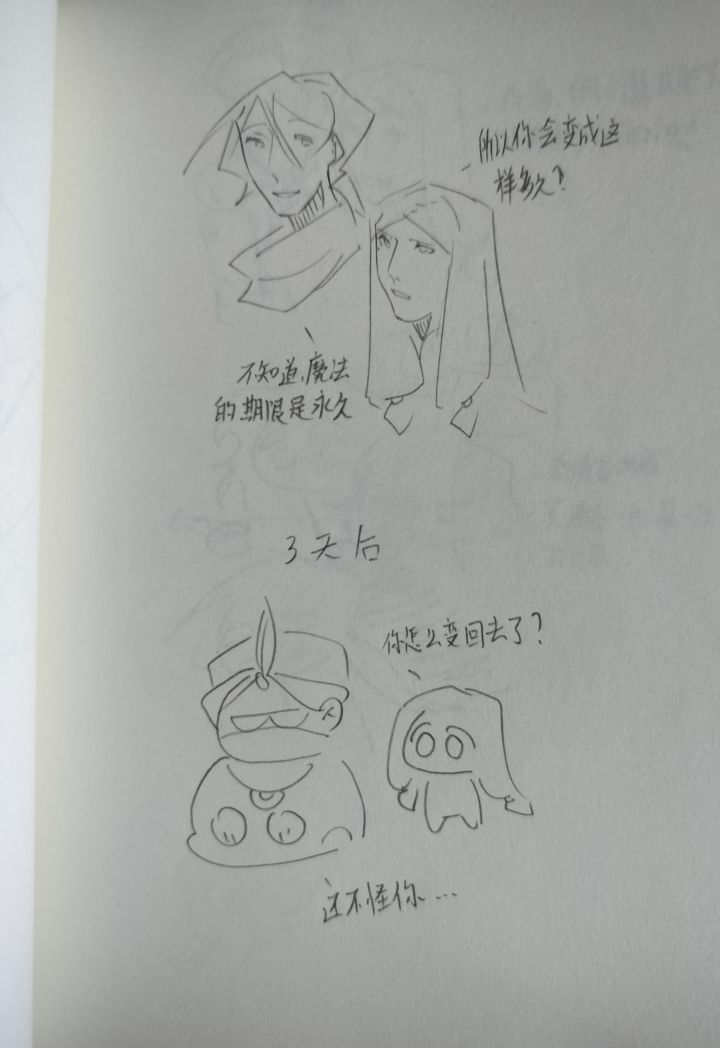 所以你会变成这
样多久?
不知道,魔法
的期限是永久
3天后
你怎么变回去了?
还不怪你...